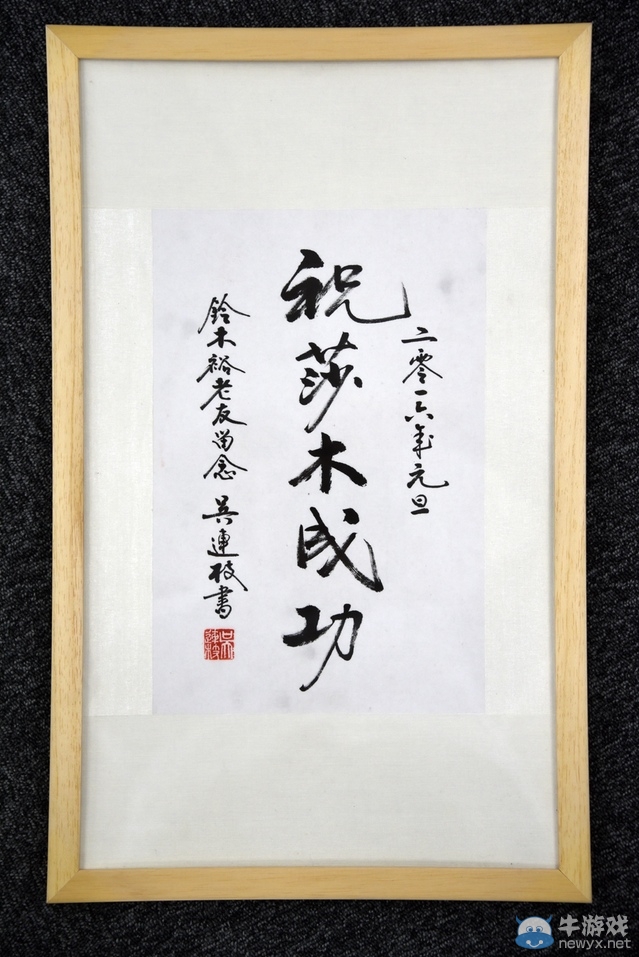 二零一六年元旦
祝莎木成功
鈴木裕老友留念 吴連枝書
吴連枝
牛游戏
newyx.net